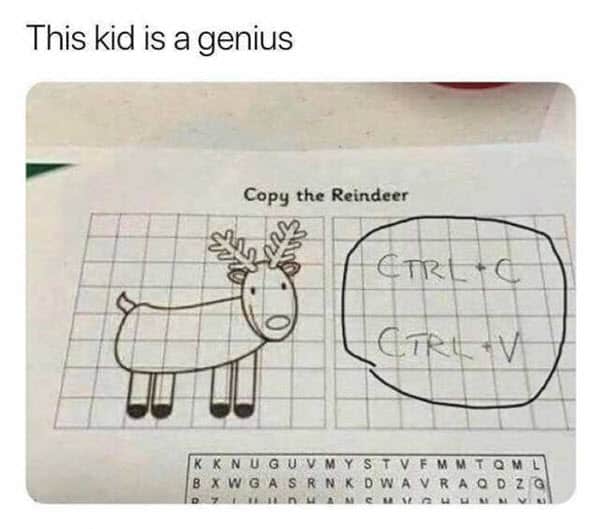 This kid is a genius
Copy the Reindeer
CTRL + C
CTRL + V
K K N U G U V M Y S T V F M M T Q M L
B X W G A S R N K D W A V R A Q D Z Q